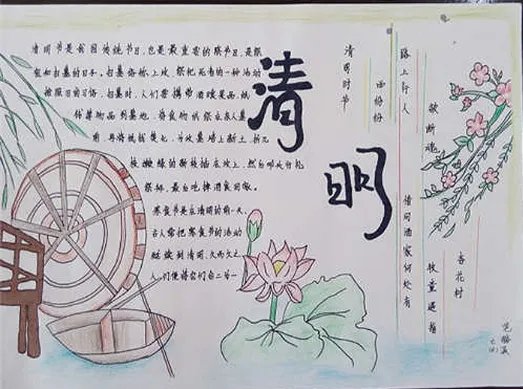 清明节是我国传统节日，也是最重要的祭节日，是祭
祖和扫墓的日子。扫墓俗称上坟，祭祀死者的一种活动
按照旧的习俗，扫墓时，人们要携带酒食果品，纸
钱等物品到墓地，将食物供祭在亲人墓
前，再将纸钱焚化，为坟墓培上新土，折几
枝嫩绿的新枝插在坟上，然后叩头行礼
祭拜，最后吃掉酒食回家。
寒食节是在清明的前一天，
古人常把寒食节的活动
延续到清明，久而久之，
人们便将它们合二为一
清明
清明时节
雨纷纷
路上行人
欲断魂
借问酒家何处有
牧童遥指
杏花村